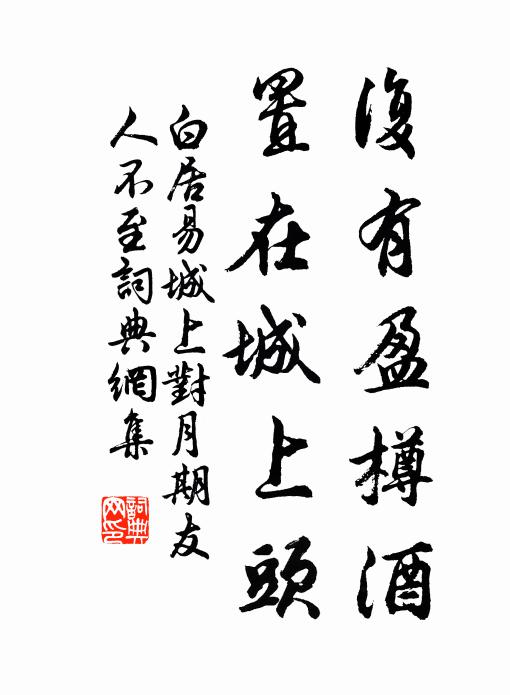 復有盈樽酒
置在城上頭
白居易城上對月期友
人不至詞典網集
詞典
网印